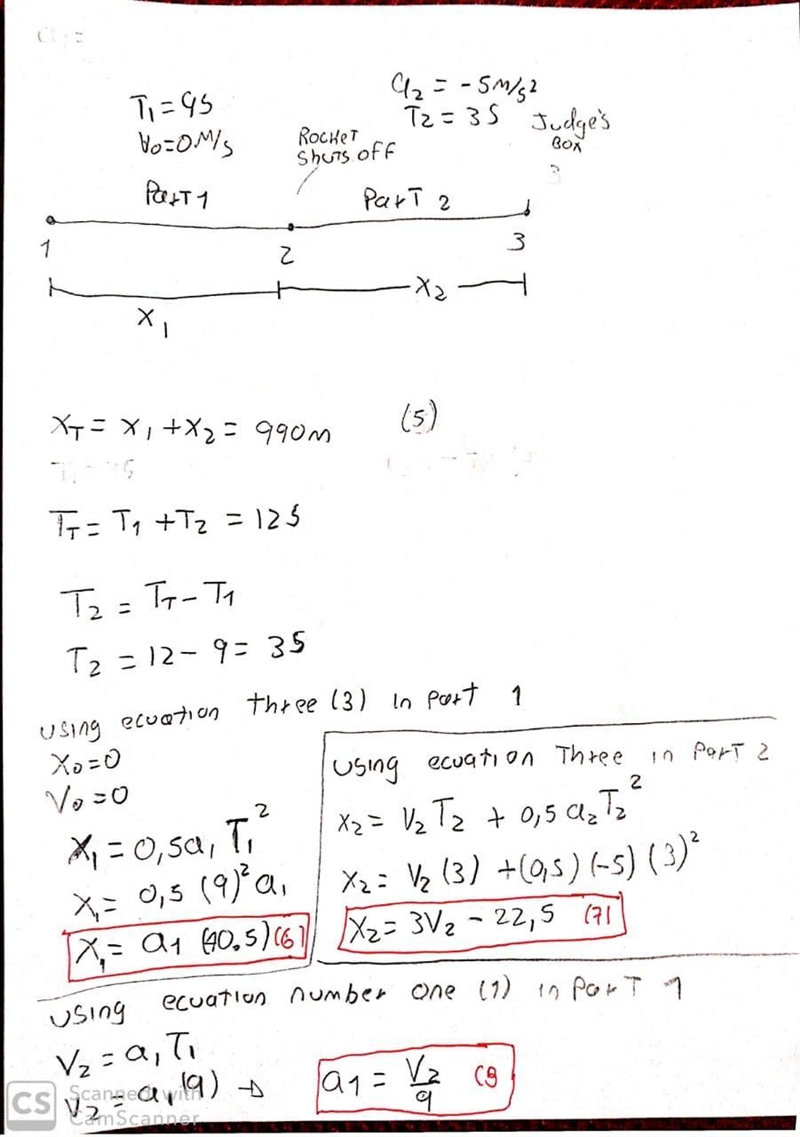 a₂ = -5 M/s²
T₁ = 9S
T₂ = 3S
V₀=0 M/S
Judge's
BOX
3
Rocket
shuts off
Part 1
Part 2
1
2
3
X₁
X₂
X_T = X₁ + X₂ = 990m (5)
T_T = T₁ + T₂ = 12S
T₂ = T_T - T₁
T₂ = 12 - 9 = 3S
Using ecuation three (3) in Part 1
X₀=0
V₀=0
X₁ = 0,5a₁ T₁²
X₁ = 0,5 (9)² a₁
X₁ = a1 (40.5) (6)
Using ecuation Three in Part 2
X₂ = V₂ T₂ + 0,5 a₂ T₂²
X₂ = V₂ (3) + (0,5) (-5) (3)²
X₂ = 3V₂ - 22,5 (7)
Using ecuation number one (1) in Part 1
V₂ = a₁ T₁
V₂ = a₁ (9) →
a1 = V₂/9 (8
CS Scanned with
CamScanner